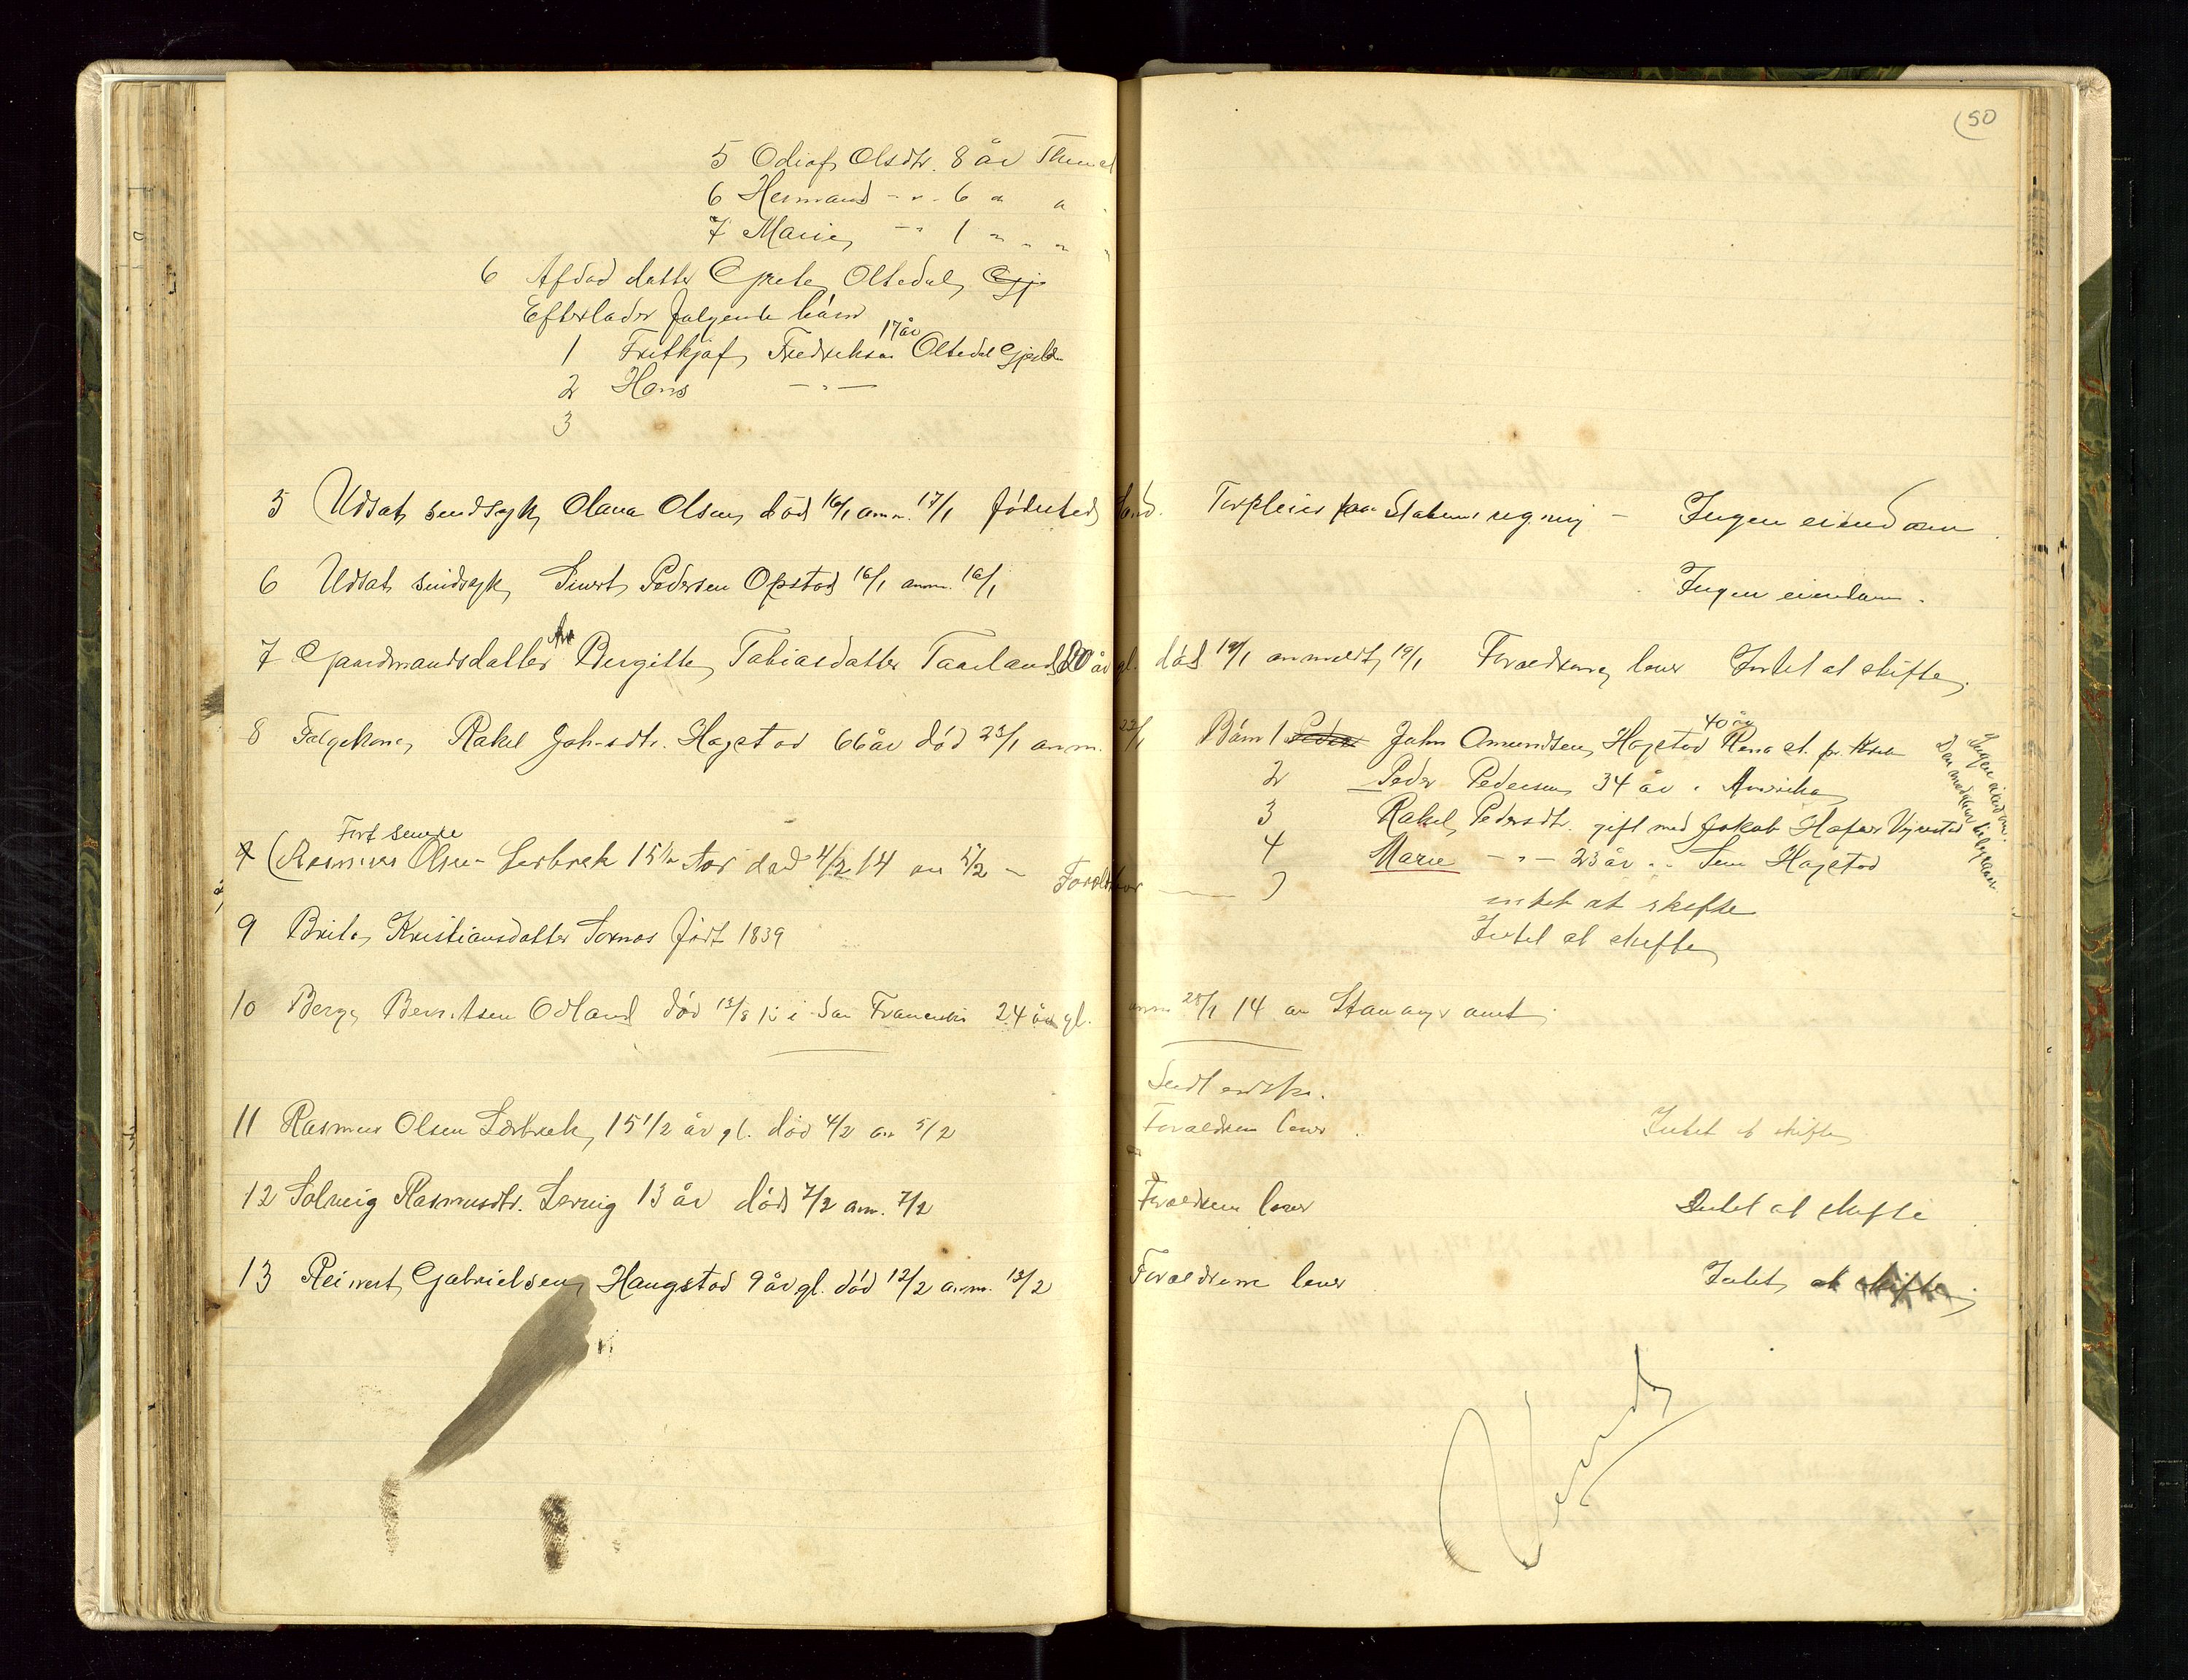 50
5 Odiaf Olsdtr. 8 år
6 Hermand - " - 6 " "
7 Marie - " 1 " " "
6 Afdød datter Grete Oltedal Gj
Efterlader følgende børn
17 år
1 Fritkjof Fredriksen Oltedal Gjesdal
2 Hans - " -
3
5 Udsat sindsyk Olava Olsen død 16/1 anm. 17/1 fødested Land. Forpleies paa Statens regning - Ingen eiendom
6 Udsat sindsyk Sivert Pedersen Opstad 16/1 anm. 16/1 Ingen eiendom.
7 Gaardmandsdatter Bergitte Tobiasdatter Taarland 20 år gl. død 19/1 anmeldt 19/1 Forældrene lever Intet at skifte
40 år
8 Følgekone Rakel Johnsdtr. Hogstad 66 år død 23/1 anm. 23/1 Børn 1 Peder John Omundsen Hogstad Rena st.
2 Peder Pedersen 34 år i Amerika
3 Rakel Pedersdtr. gift med Jakob
4 Marie - " - 23 år Hogstad
Ingen eiendom
Fort senere
9 (Rasmus Olsen Lerbrek 15 1/2 død 4/2 14 an 5/2 - Forældrer
intet at skifte
9 Brita Kristiansdatter Sornes født 1839 Intet at skifte
10 Berge Berntsen Odland død 13/8 i San Francisko 24 år gl. anm 28/1 14 av Stavanger amt.
11 Rasmus Olsen Lerbrek, 15 1/2 år gl. død 4/2 an 5/2 Forældrene lever. Intet at skifte
12 Solveig Rasmusdtr. Lervig 13 år død 7/2 anm. 7/2 Forældrene lever Intet at skifte
13 Reinert Gabrielsen Haugstad 9 år gl. død 12/2 anm. 13/2 Forældrene lever Intet at skifte